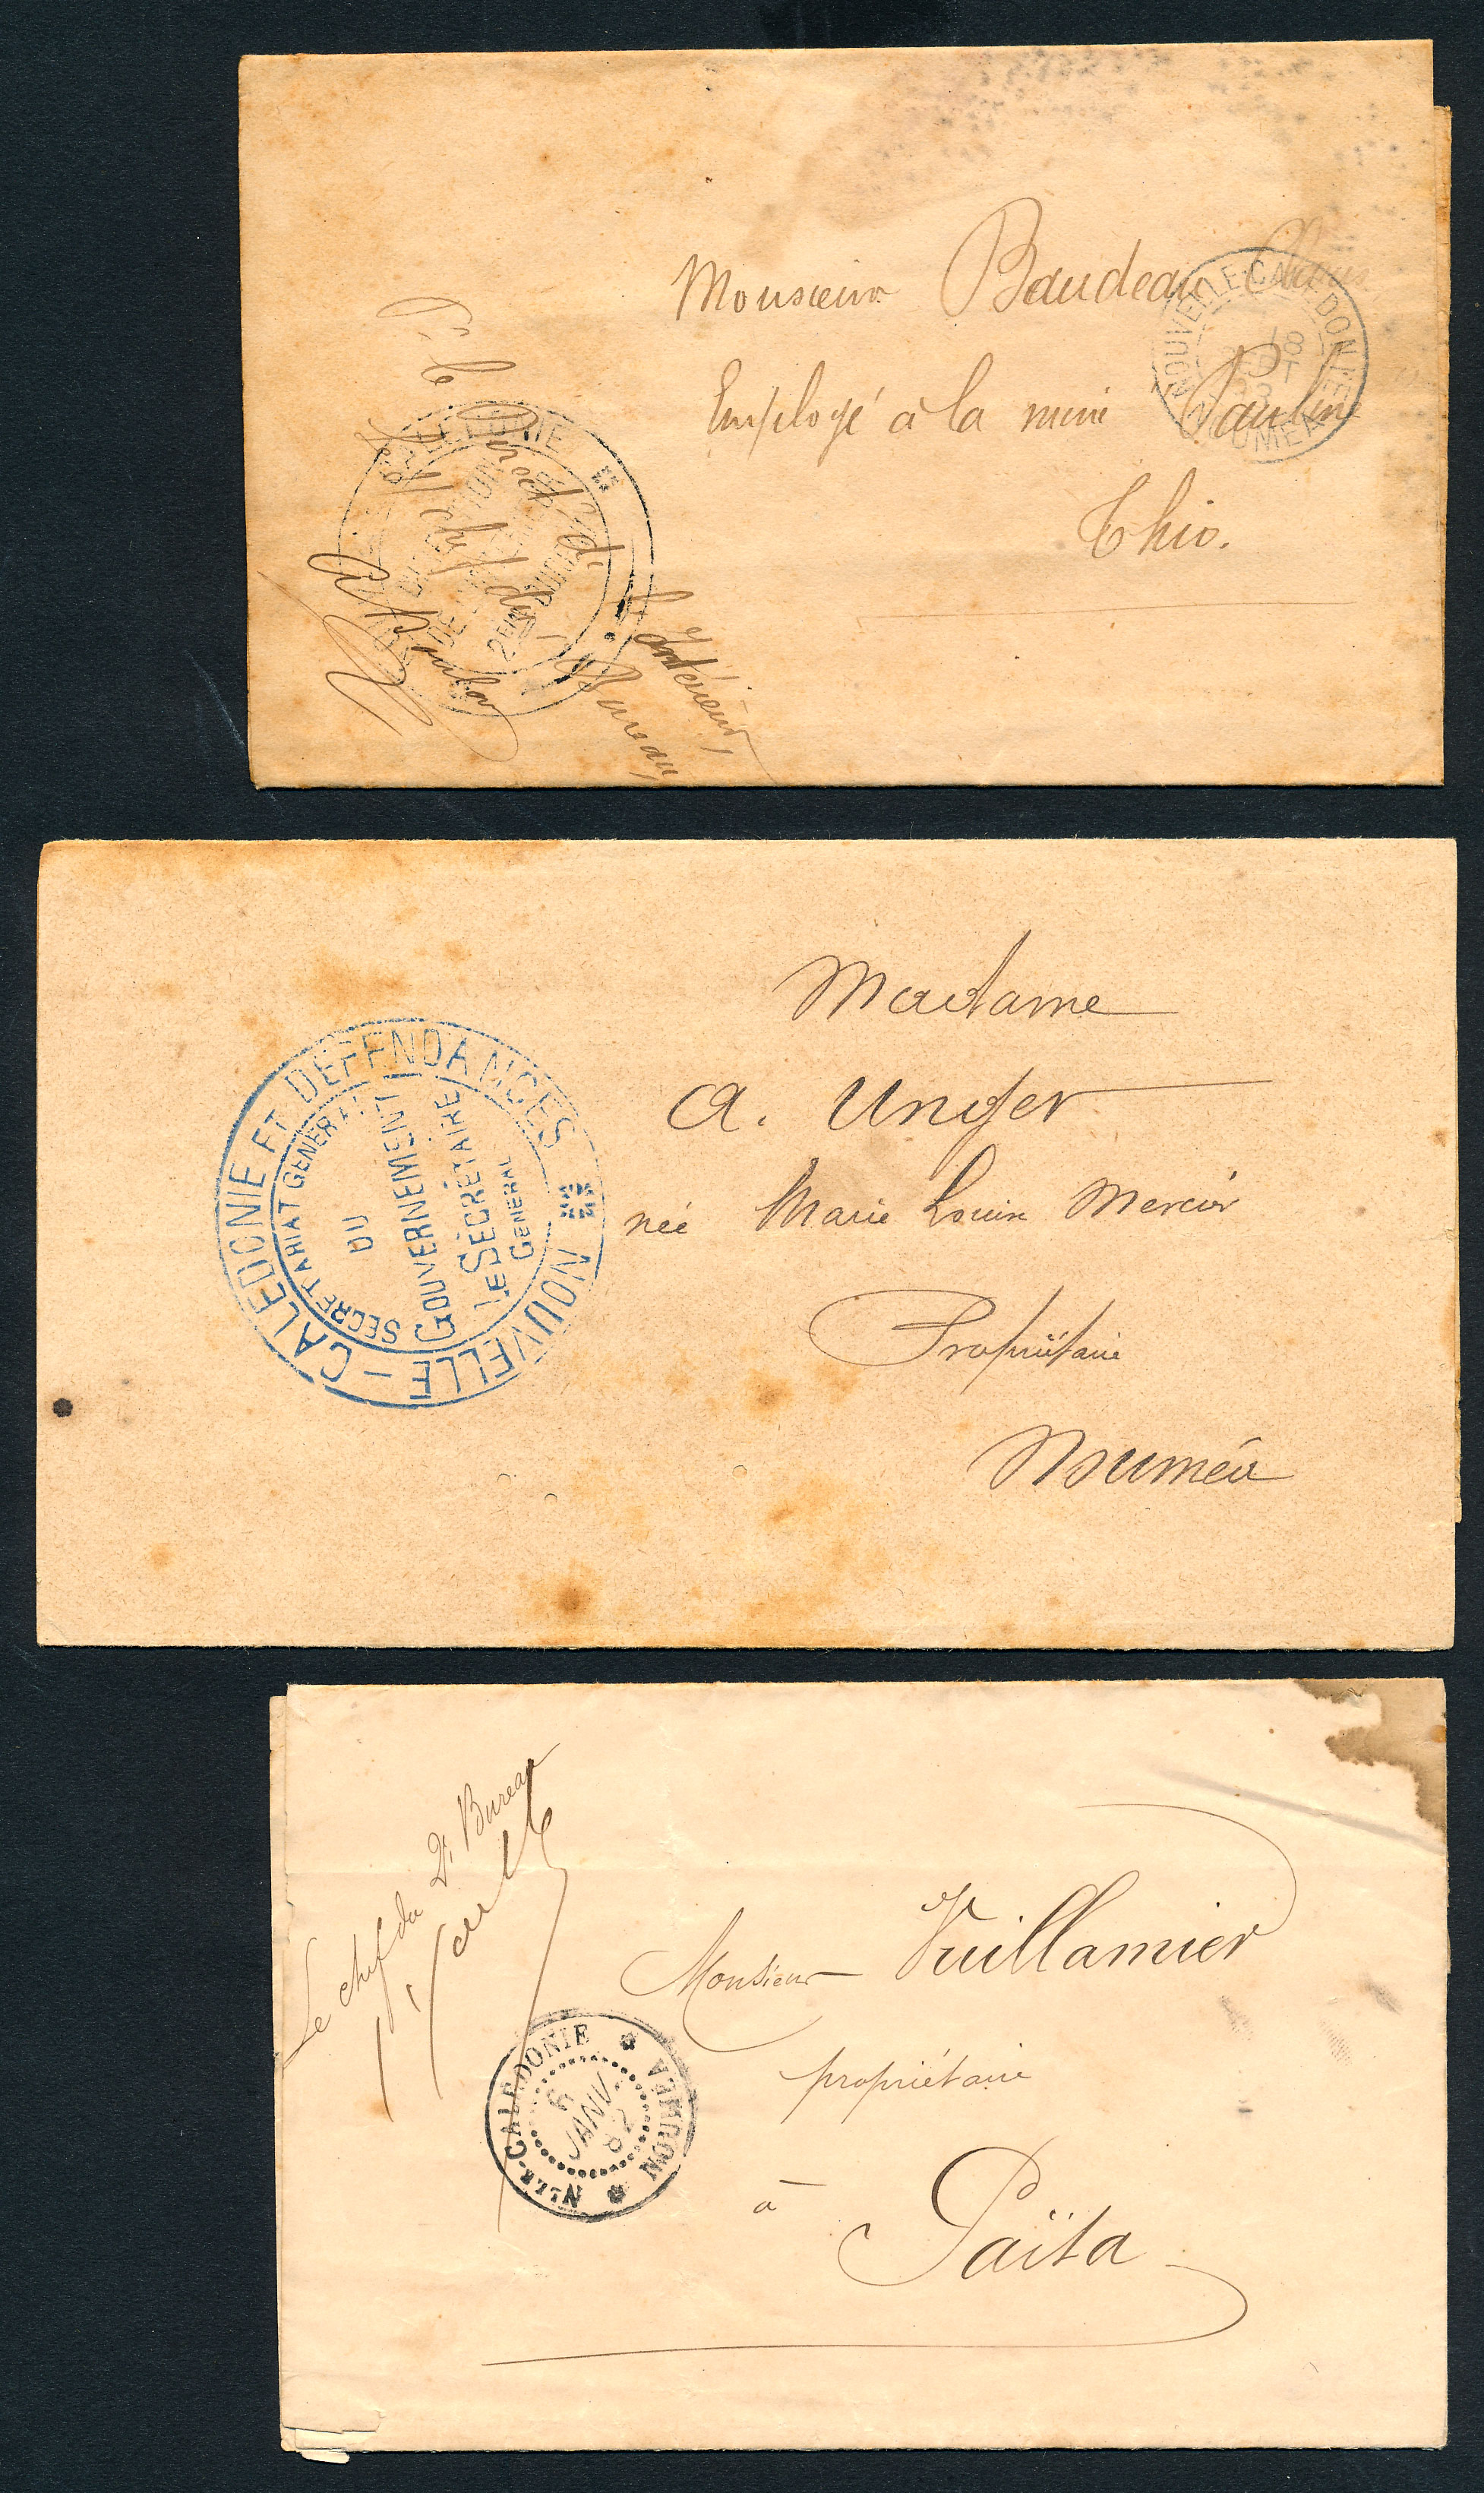 Monsieur Baudeau
Employé à la mine Pauline
Thio.
NOUVELLE-CALEDONIE
NOUMEA
18
SEPT
Pr le Direct. de l'Intérieur,
Le chef du Bureau,
Madame
A. Unger
née Marie Louise Mercier
Propriétaire
Nouméa
NOUVELLE-CALEDONIE ET DEPENDANCES
SECRETARIAT GENERAL
DU
GOUVERNEMENT
LE SECRÉTAIRE
GENERAL
Le chef du 2e Bureau
Monsieur Vuillamier
propriétaire
à
Païta
NLLE-CALEDONIE
NOUMEA
6
JANV.
82